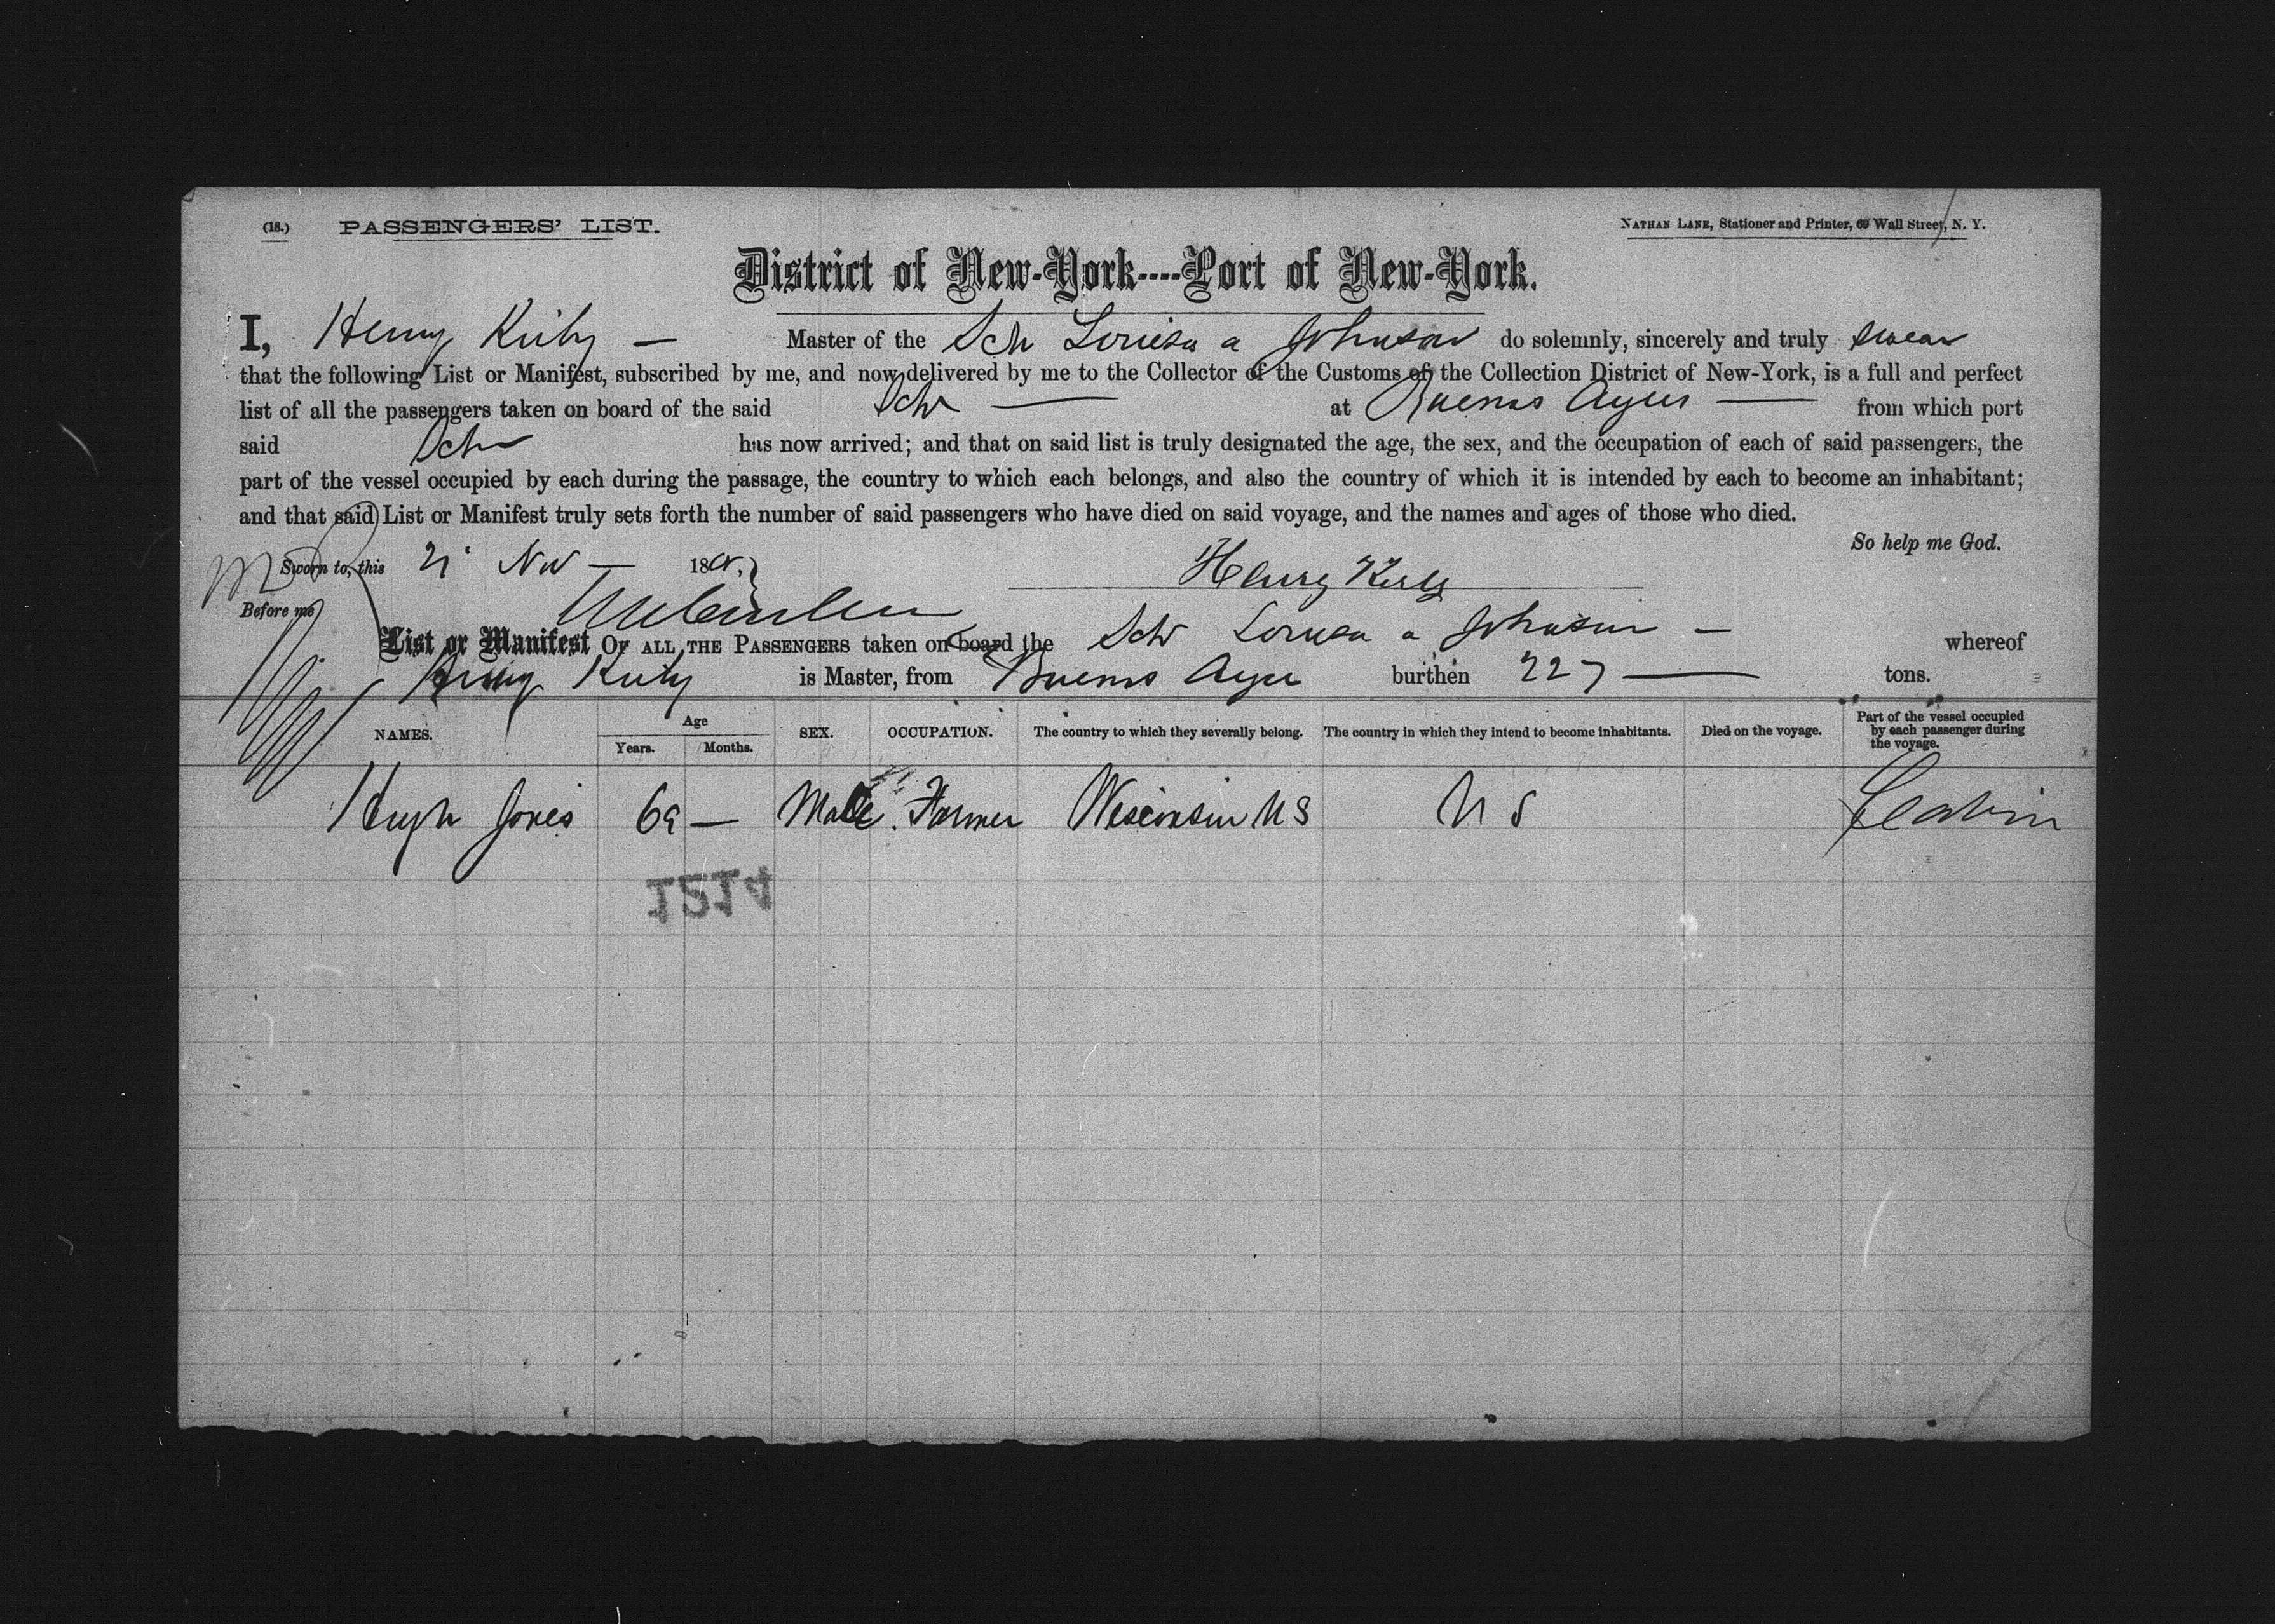 (18.) PASSENGERS' LIST.
NATHAN LANE, Stationer and Printer, 69 Wall Street, N. Y.
District of New-York----Port of New-York.
I, Henry Kirby — Master of the Sch Louisa a Johnson do solemnly, sincerely and truly swear
that the following List or Manifest, subscribed by me, and now delivered by me to the Collector of the Customs of the Collection District of New-York, is a full and perfect
list of all the passengers taken on board of the said Schr — at Buenos Ayres — from which port
said Schr has now arrived; and that on said list is truly designated the age, the sex, and the occupation of each of said passengers, the
part of the vessel occupied by each during the passage, the country to which each belongs, and also the country of which it is intended by each to become an inhabitant;
and that said List or Manifest truly sets forth the number of said passengers who have died on said voyage, and the names and ages of those who died.
So help me God.
Sworn to, this 21 Nov — 18
Henry Kirby
Before me
List or Manifest OF ALL THE PASSENGERS taken on board the Schr Louisa a Johnson — whereof
Henry Kirby is Master, from Buenos Ayres burthen 227 — tons.
NAMES. Age Years. Months. SEX. OCCUPATION. The country to which they severally belong. The country in which they intend to become inhabitants. Died on the voyage. Part of the vessel occupied by each passenger during the voyage.
Hugh Jones 69 — Male. Farmer Wisconsin U S U S Cabin
1214